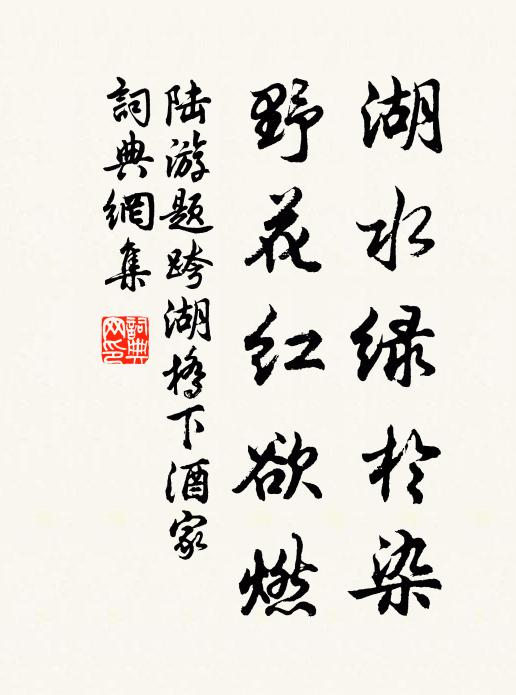 湖水绿於染
野花红欲燃
陆游题跨湖橋下酒家
詞典網集
詞典网印